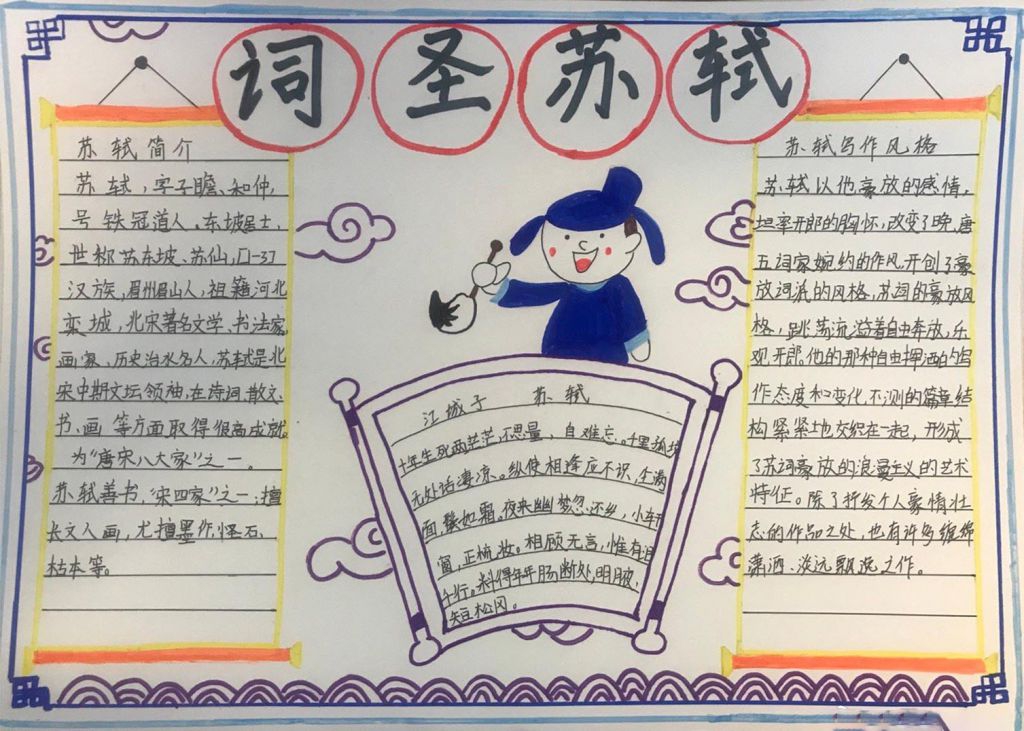 词圣苏轼
苏轼简介
苏轼，字子瞻、和仲，
号铁冠道人、东坡居士，
世称苏东坡、苏仙，
汉族，眉州眉山人，祖籍河北
栾城，北宋著名文学、书法家
画家、历史治水名人，苏轼是北
宋中期文坛领袖，在诗词、散文、
书、画等方面取得很高成就。
为“唐宋八大家”之一。
苏轼善书，“宋四家”之一，擅
长文人画，尤擅墨竹、怪石、
枯木等。
江城子 苏轼
十年生死两茫茫，不思量，自难忘。千里孤坟
无处话凄凉。纵使相逢应不识，尘满
面，鬓如霜。夜来幽梦忽还乡，小轩
窗，正梳妆。相顾无言，惟有泪
千行。料得年年肠断处，明月夜，
短松冈。
苏轼写作风格
苏轼以他豪放的感情，
坦率开朗的胸怀，改变了晚唐
五词家婉约的作风，开创了豪
放词派的风格，苏词的豪放风
格，跳荡流溢着自由奔放，乐
观开郎。他的那种自由挥洒的写
作态度和变化不测的篇章结
构紧紧地交织在一起，形成
了苏词豪放的浪曼主义的艺术
特征。除了抒发个人豪情壮
志的作品之处，也有许多缠绵
潇洒、淡远飘逸之作。